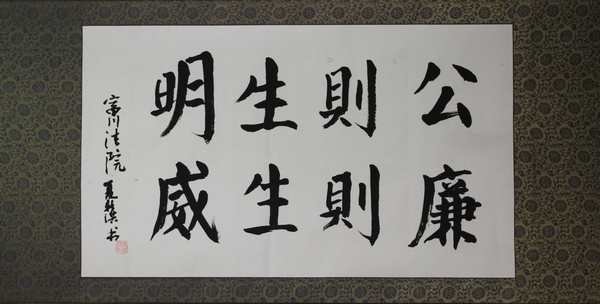 公廉
則則
生生
明威
富川法院
书